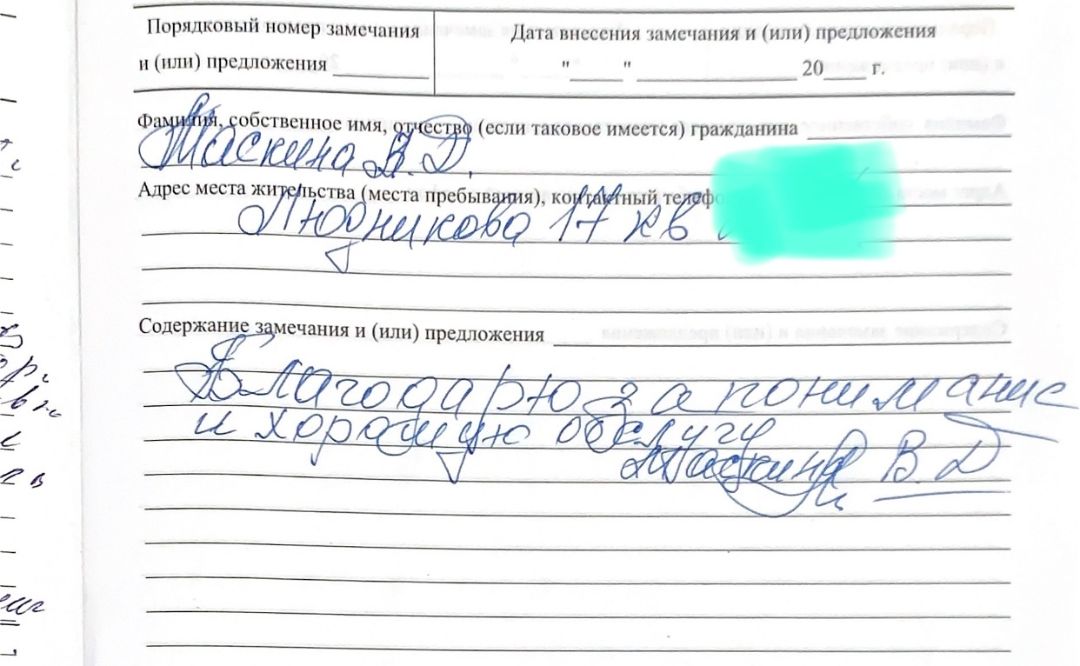 Порядковый номер замечания
и (или) предложения
Дата внесения замечания и (или) предложения
"____" ____________ 20___ г.
Фамилия, собственное имя, отчество (если таковое имеется) гражданина
Таскина В.Д.
Адрес места жительства (места пребывания), контактный телефо
Людникова 17 кв
Содержание замечания и (или) предложения
Благодарю за понимание
и хорашую обслугу
Таскина В.Д